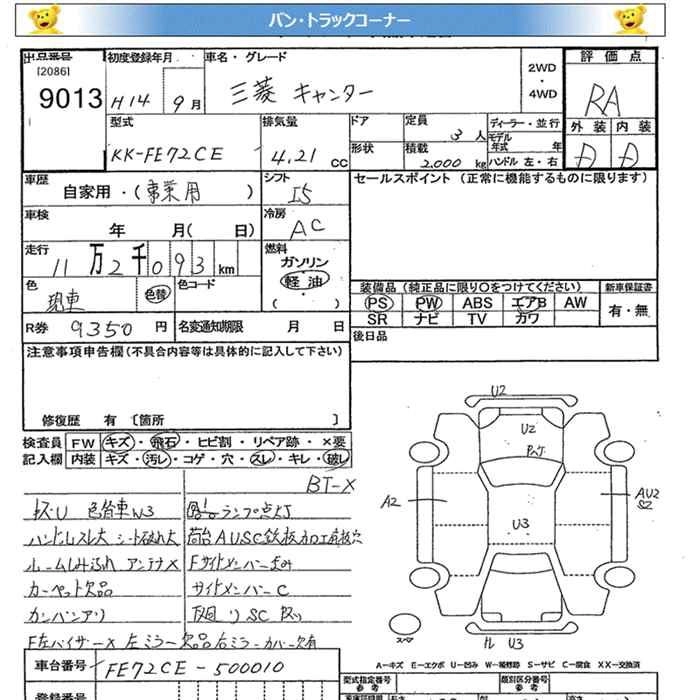 バン・トラックコーナー
出品番号 初度登録年月 車名・グレード 2WD・4WD 評価点
[2086]
9013 H14 9月 三菱 キャンター RA
型式 排気量 ドア 定員 3人 ディーラー・並行 外装 内装
KK-FE72CE 4.21 CC 形状 積載 2,000 kg モデル年式 年 ハンドル 左・右 D D
車歴 自家用・(事業用) シフト I5 セールスポイント (正常に機能するものに限ります)
車検 年 月( 日) 冷房 AC
走行 11万2千093km 燃料 ガソリン 軽油 ( )
色 現車 色替 色コード 装備品 (純正品に限り○をつけてください) 新車保証書
PS PW ABS エアB AW 有・無
SR ナビ TV カワ
R券 9350円 名変通知期限 月 日 後日品
注意事項申告欄 (不具合内容等は具体的に記入して下さい)
修復歴 有 〔箇所 〕
検査員 FW キズ・飛石・ヒビ割・リペア跡・×要
記入欄 内装 キズ・汚レ・コゲ・穴・スレ・キレ・破レ
BT-X
キズU 色替車W3 ランプ点灯
ハンドルスレ大 シート破れ大 荷台AUSC鉄板加工有板穴
ルームしみ汚れ アンテナX Fサイドメンバー歪み
カーペット欠品 サイドメンバーC
カンバンアリ 下廻りSC
F左バイザーX 左ミラー欠品 右ミラーカバー欠有
車台番号 FE72CE-500010
登録番号 型式指定番号 参考 類別区分番号 参考
U2
U2
A2
U3
AU2
S2
スペア
U3
A－キズ E－エクボ U－凹み W－補修跡 S－サビ C－腐食 XX－交換済